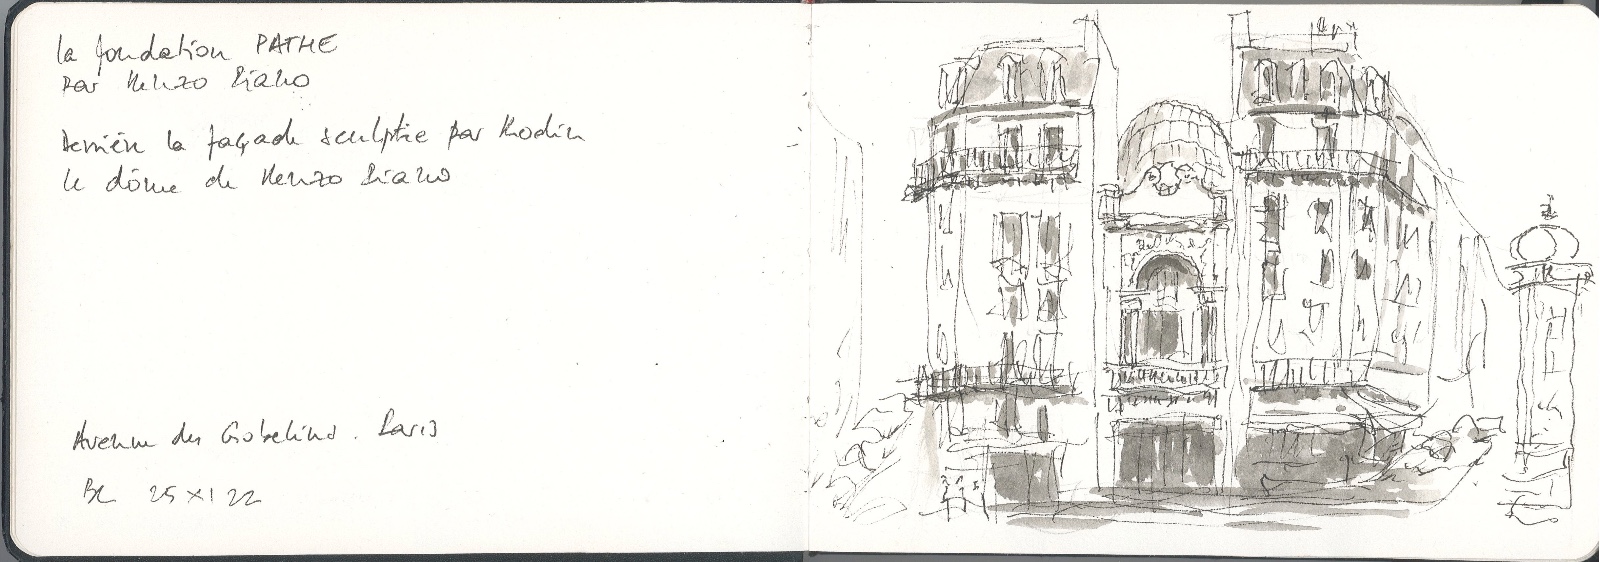 la fondation PATHE
par Renzo Piano
Derrière la façade sculptée par Rodin
le dôme de Renzo Piano
Avenue des Gobelins. Paris
25 XI 22